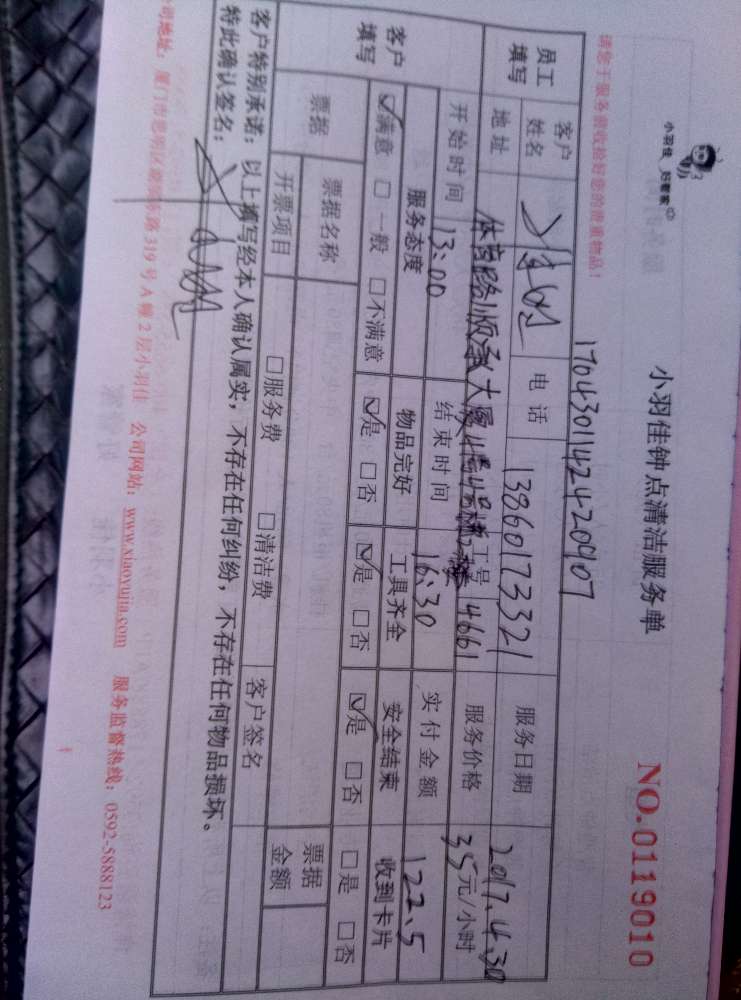 小羽佳 好管家
小羽佳钟点清洁服务单
NO.0119010
请您于服务前收拾好您的贵重物品！
17043011424420907
员工填写
客户姓名 电话 13860173321 服务日期 2017.4.30
地址 体育路顺承大厦 工号 4661 服务价格 35元/小时
客户填写
开始时间 13:00 结束时间 16:30 实付金额 122.5
服务态度 物品完好 工具齐全 安全结束 收到卡片
☑满意 □一般 □不满意 ☑是 □否 ☑是 □否 ☑是 □否 □是 □否
票据 票据名称 票据金额
开票项目 □服务费 □清洁费 客户签名
客户特别承诺：以上填写经本人确认属实，不存在任何纠纷，不存在任何物品损坏。
特此确认签名：
司地址：厦门市思明区 路319号A幢2层小羽佳 公司网站：www.xiaoyujia.com 服务监督热线：0592-5888123